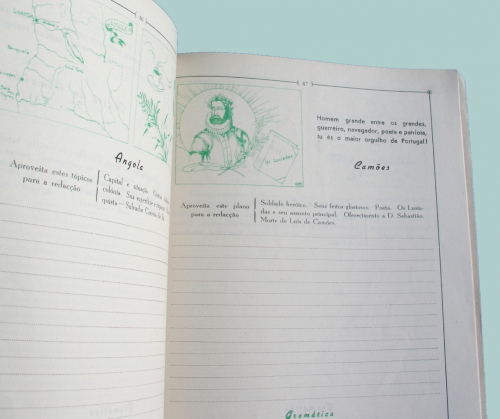 86
Luanda
Angola
Aproveita estes tópicos
para a redacção
Capital e situação.
colónia. Sua superfície e
quista — Salvador Correia de Sá
87
Os Lusíadas
Homem grande entre os grandes,
guerreiro, navegador, poeta e patriota,
tu és o maior orgulho de Portugal!
Camões
Aproveita este plano
para a redacção
Soldado heróico. Seus feitos gloriosos. Poeta. Os Lusía-
das e seu assunto principal. Oferecimento a D. Sebastião.
Morte de Luís de Camões.
Gramática